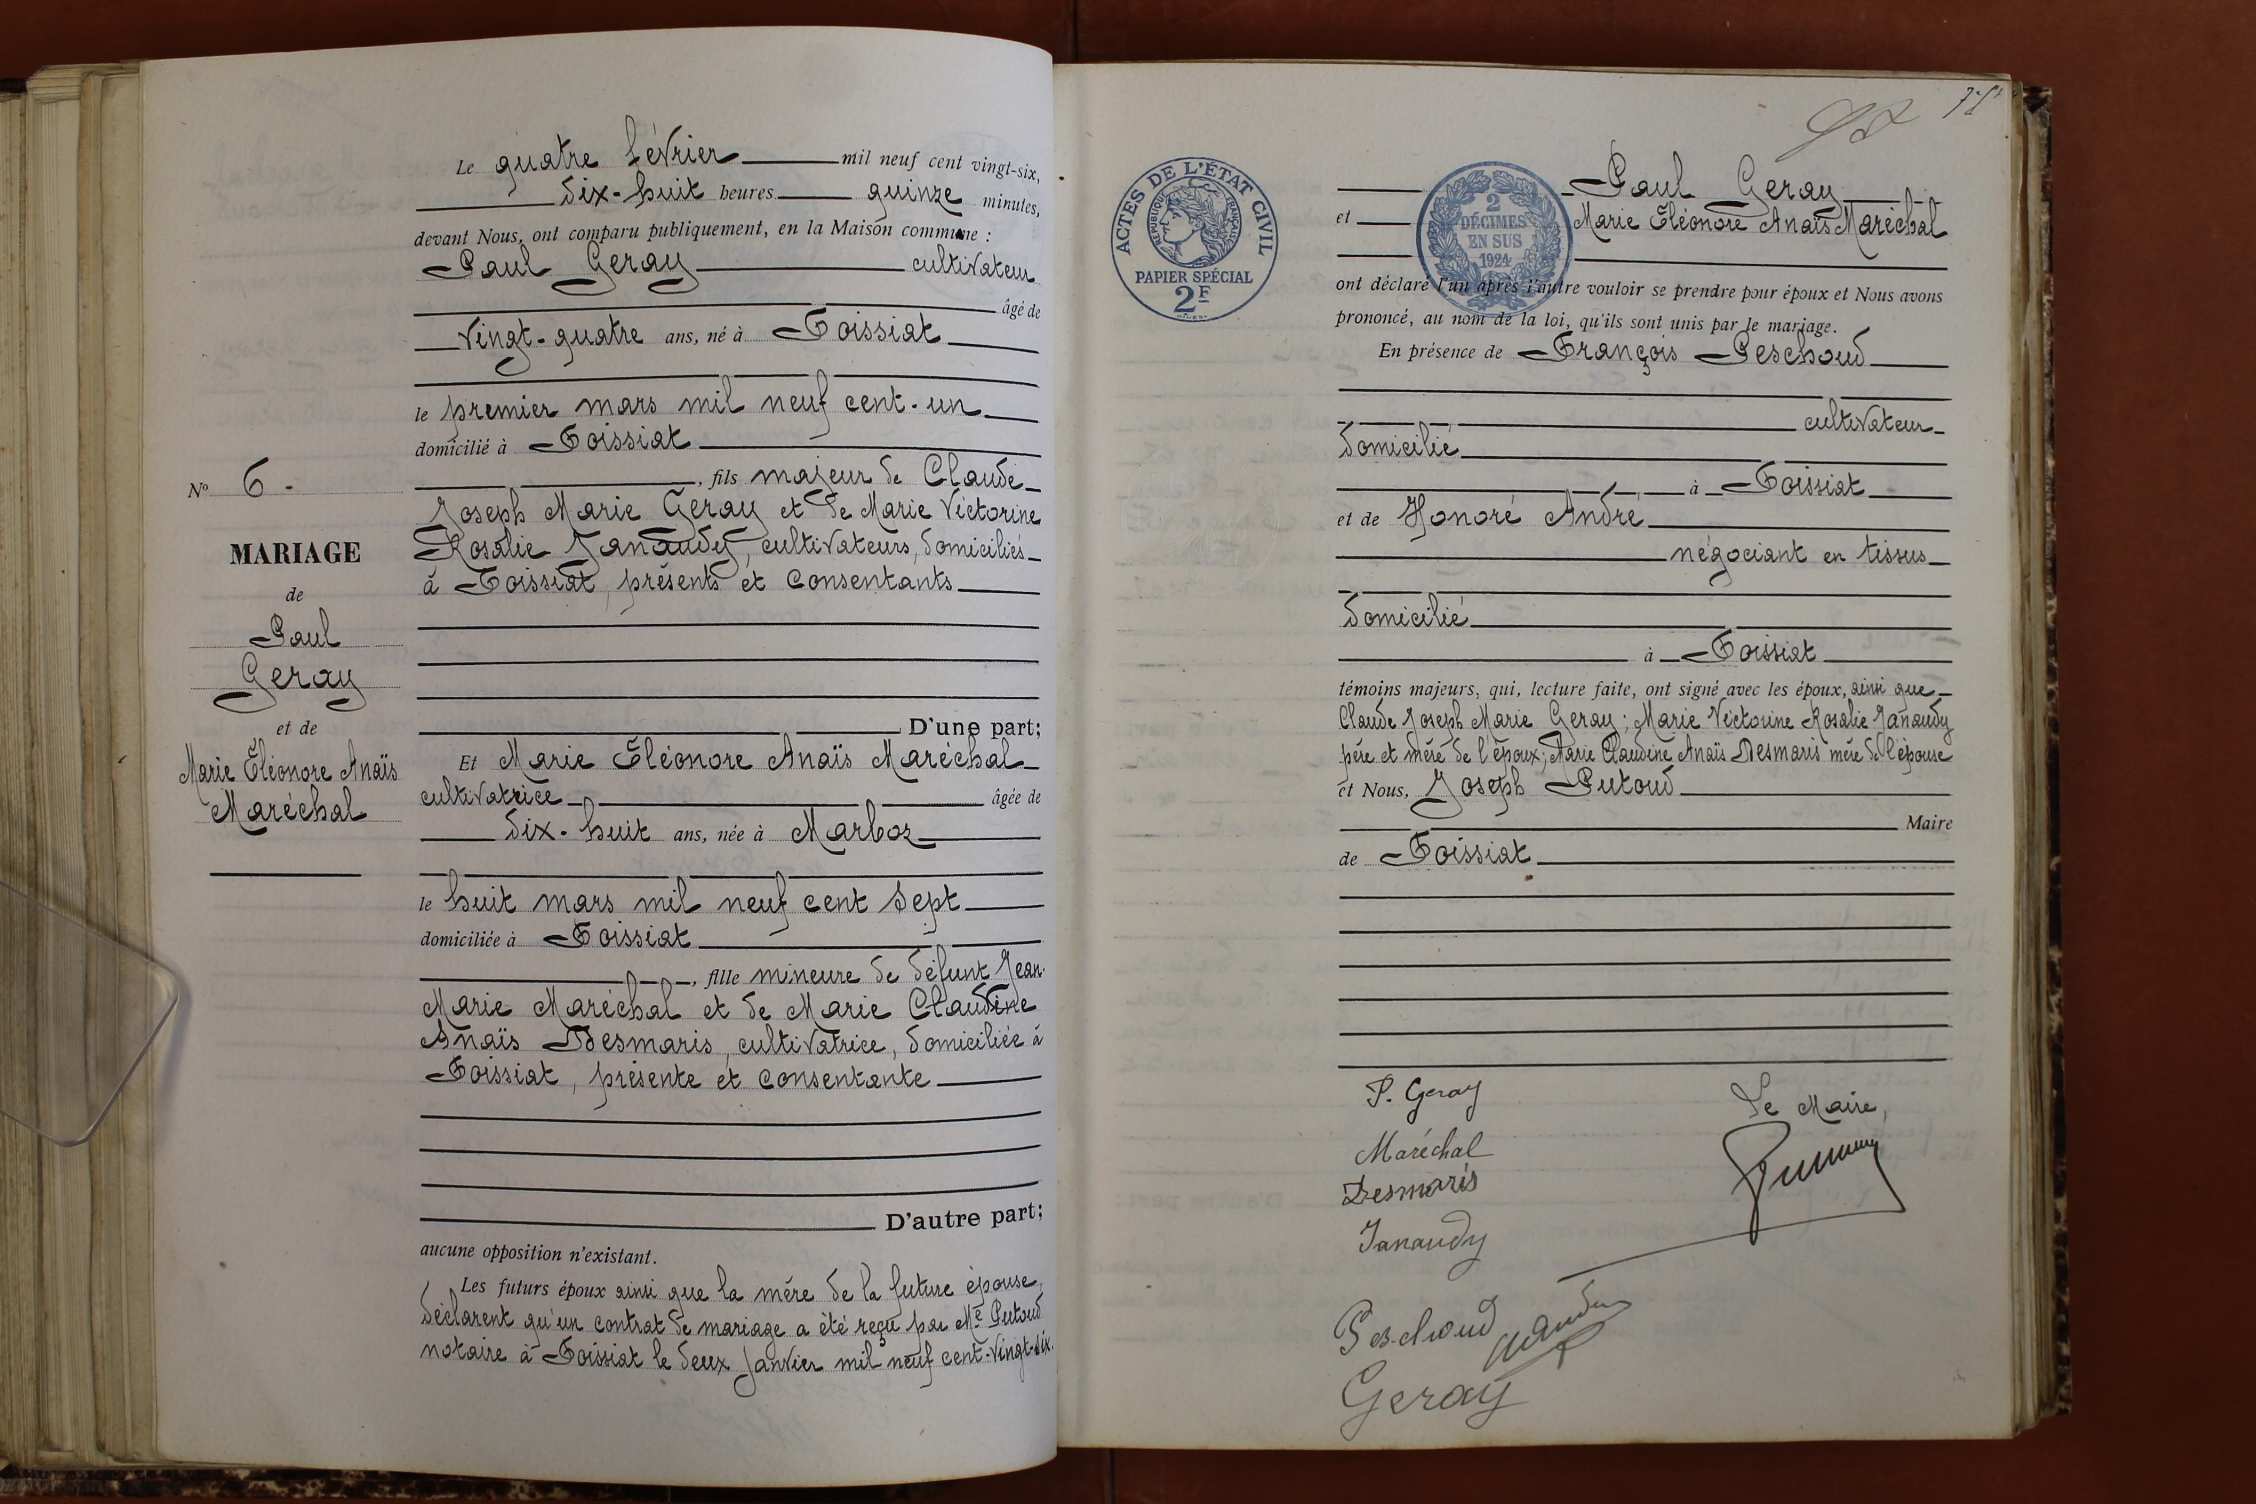 Le quatre février mil neuf cent vingt-six,
dix-huit heures quinze minutes,
devant Nous, ont comparu publiquement, en la Maison commune :
Paul Geray cultivateur
âgé de
vingt-quatre ans, né à Foissiat
le premier mars mil neuf cent-un
domicilié à Foissiat
, fils majeur de Claude
Joseph Marie Geray et de Marie Victorine
Rosalie Janaudy, cultivateurs, domiciliés
à Foissiat, présents et consentants
D'une part;
Et Marie Eléonore Anaïs Maréchal
cultivatrice âgée de
dix-huit ans, née à Marboz
le huit mars mil neuf cent sept
domiciliée à Foissiat
, fille mineure de défunt Jean-
Marie Maréchal et de Marie Claudine
Anaïs Desmaris, cultivatrice, domiciliée à
Foissiat, présente et consentante
D'autre part;
aucune opposition n'existant.
Les futurs époux ainsi que la mère de la future épouse,
déclarent qu'un contrat de mariage a été reçu par Me Putoud
notaire à Foissiat le deux janvier mil neuf cent-vingt-six.
No 6.
MARIAGE
de
Paul
Geray
et de
Marie Eléonore Anaïs
Maréchal
ACTES DE L'ÉTAT CIVIL
RÉPUBLIQUE FRANÇAISE
PAPIER SPÉCIAL
2F
2
DÉCIMES
EN SUS
1924
Paul Geray
et Marie Eléonore Anaïs Maréchal
ont déclaré l'un après l'autre vouloir se prendre pour époux et Nous avons
prononcé, au nom de la loi, qu'ils sont unis par le mariage.
En présence de François Peschoud
cultivateur
domicilié
à Foissiat
et de Honoré André
négociant en tissus
domicilié
à Foissiat
témoins majeurs, qui, lecture faite, ont signé avec les époux, ainsi que
Claude Joseph Marie Geray; Marie Victorine Rosalie Janaudy
père et mère de l'époux; Marie Claudine Anaïs Desmaris mère de l'épouse
et Nous, Joseph Putoud
Maire
de Foissiat
P. Geray
Maréchal
Desmaris
Janaudy
Peschoud
Geray
Le Maire,